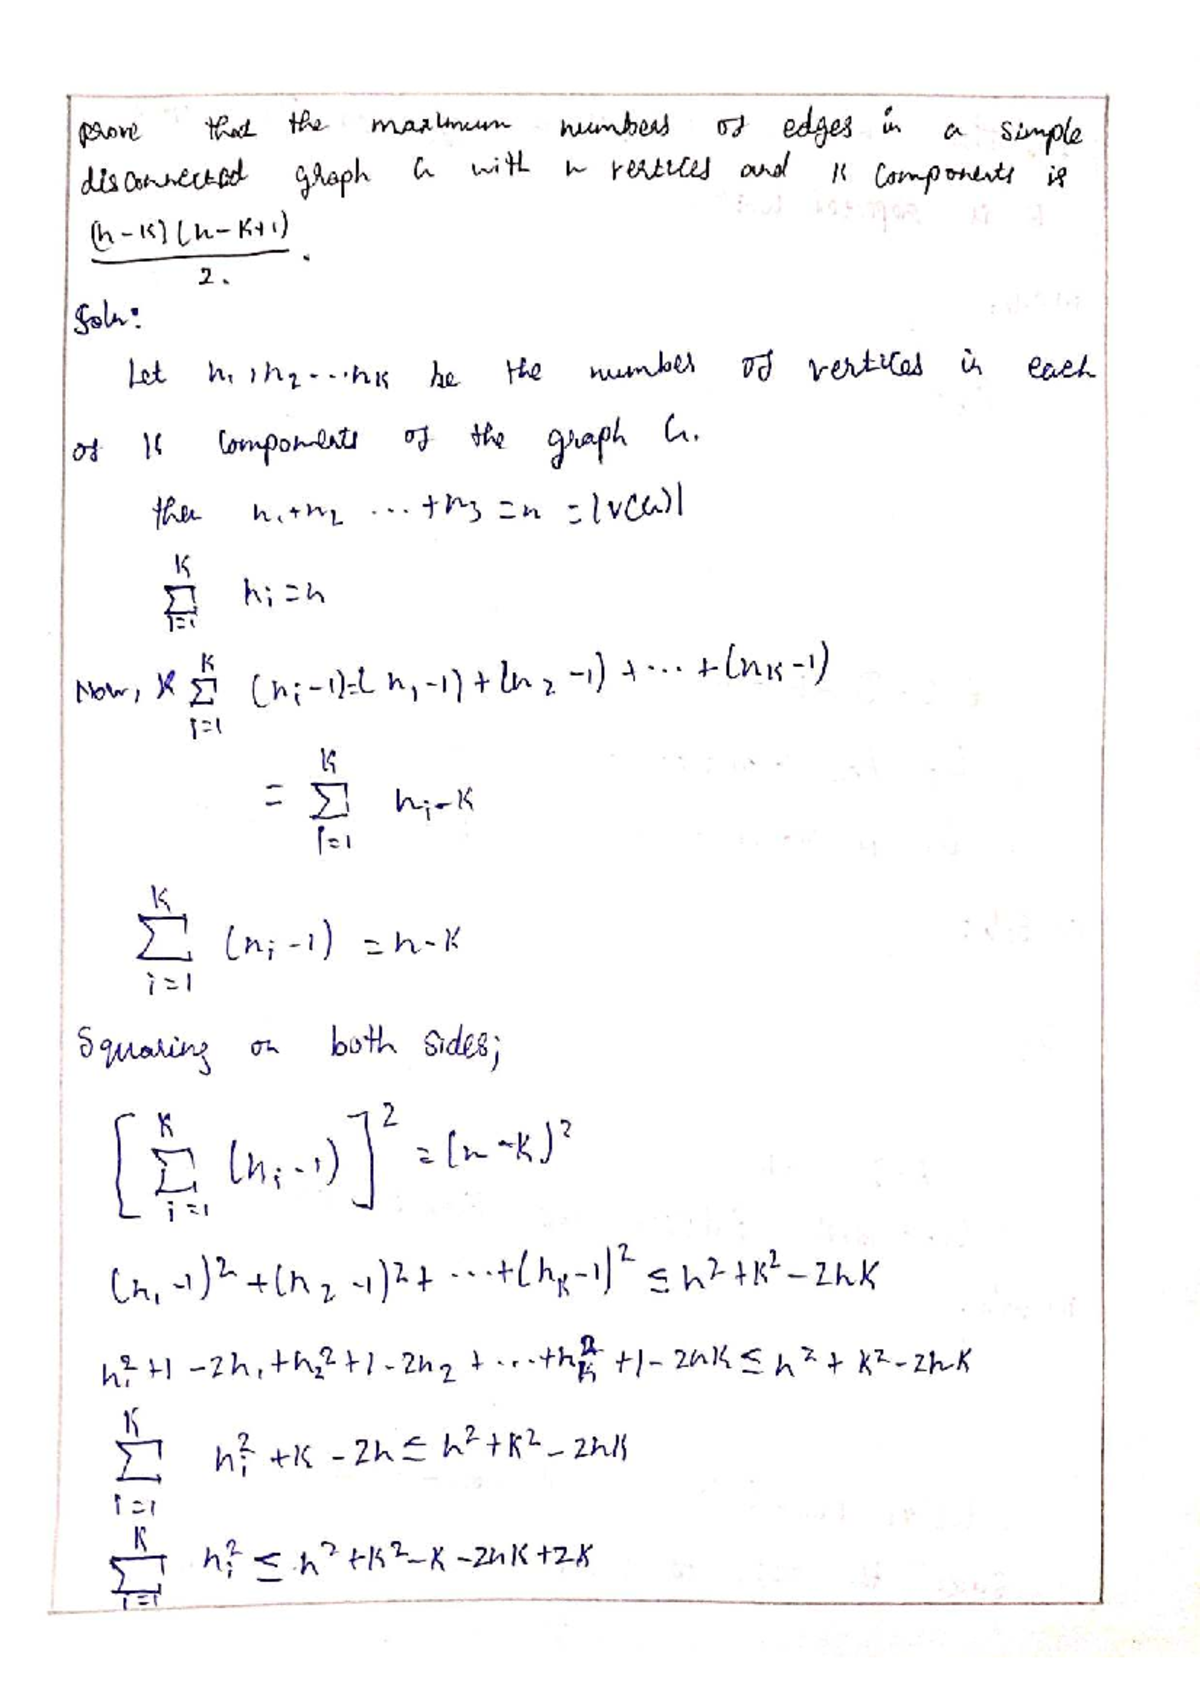 prove that the maximum numbers of edges in a simple
disconnected graph G with n vertices and K components is
(n-K)(n-K+1)
2.
Soln:
Let n1, n2 ... nK be the number of vertices in each
of K components of the graph G.
then n1+n2 ... +n3 = n = |V(G)|
K
Σ ni = n
i=1
Now, K Σ (ni-1) = (n1-1)+(n2-1)+...+(nK-1)
i=1
K
= Σ ni-K
i=1
K
Σ (ni-1) = n-K
i=1
Squaring on both sides;
[ K Σ i=1 (ni-1) ]² = (n-K)²
(n1-1)²+(n2-1)²+ ...+(nK-1)² ≤ n²+K²-2nK
n1²+1-2n1+n2²+1-2n2+...+nK²+1-2nK ≤ n²+K²-2nK
K
Σ ni²+K-2n ≤ n²+K²-2nK
i=1
K
Σ ni² ≤ n²+K²-K-2nK+2K
i=1